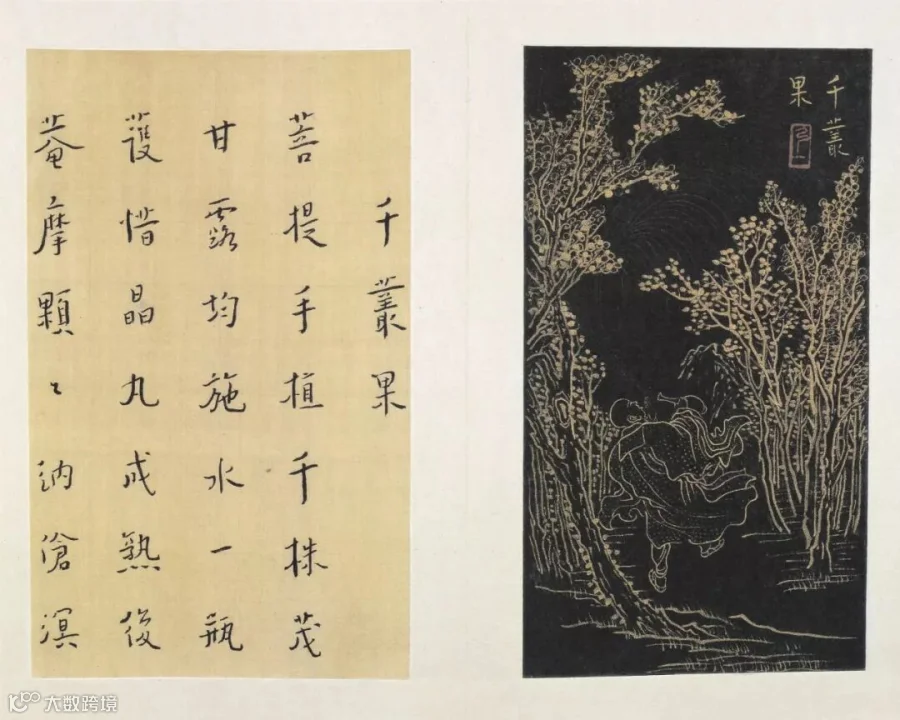 千叢
果
千叢果
菩提手植千株茂
甘露均施水一瓶
護惜晶丸成熟後
菴摩顆〻納滄溟
大数跨境